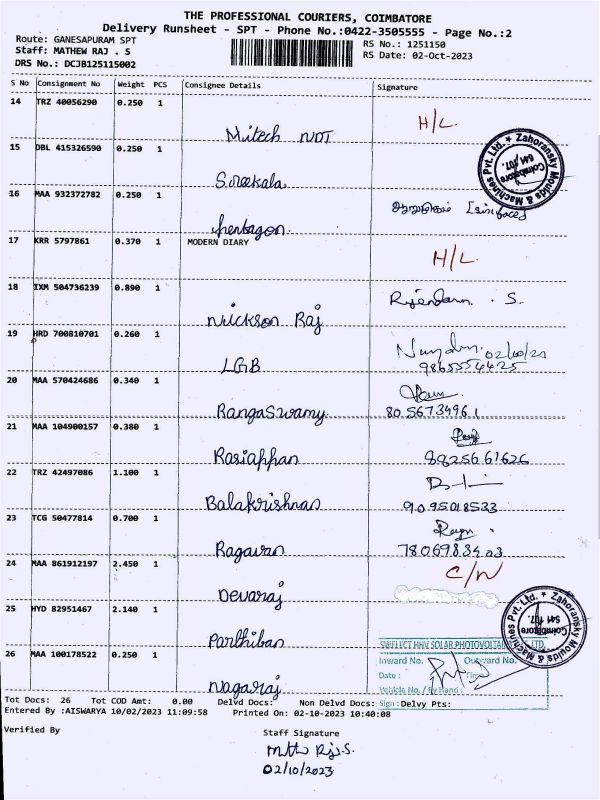 THE PROFESSIONAL COURIERS, COIMBATORE
Delivery Runsheet - SPT - Phone No.:0422-3505555 - Page No.:2
Route: GANESAPURAM SPT
RS No.: 1251150
Staff: MATHEW RAJ . S
RS Date: 02-Oct-2023
DRS No.: DCJB125115002
S No Consignment No Weight PCS Consignee Details Signature
14 TRZ 40056290 0.250 1
Mitech NDT H/L
15 DBL 415326590 0.250 1
Sreekala
Zahoransky Moulds & Machines Pvt. Ltd. * Coimbatore 641 107.
16 MAA 932372782 0.250 1
Pentagon
17 KRR 5797861 0.370 1 MODERN DIARY
H/L
18 IXM 504736239 0.890 1
Nickson Raj Rajendran . S.
19 HRD 700810701 0.260 1
LGB 9865554425
20 MAA 570424686 0.340 1
RangaSwamy 8056734961
21 MAA 104900157 0.380 1
Rasiappan 8825661626
22 TRZ 42497086 1.100 1
Balakrishnan 9095018533
23 TCG 50477814 0.700 1
Ragavan 7806983403
24 MAA 861912197 2.450 1
Devaraj C/N
25 HYD 82951467 2.140 1
Parthiban
Zahoransky Moulds & Machines Pvt. Ltd. * Coimbatore 641 107.
26 MAA 100178522 0.250 1
Nagaraj
SWELECT HHV SOLAR PHOTOVOLTAIC LTD.
Inward No. Outward No.
Date : Time
Vehicle No. / By Hand :
Sign :
Tot Docs: 26 Tot COD Amt: 0.00 Delvd Docs: Non Delvd Docs: Delvy Pts:
Entered By :AISWARYA 10/02/2023 11:09:58 Printed On: 02-10-2023 10:40:08
Verified By Staff Signature
02/10/2023